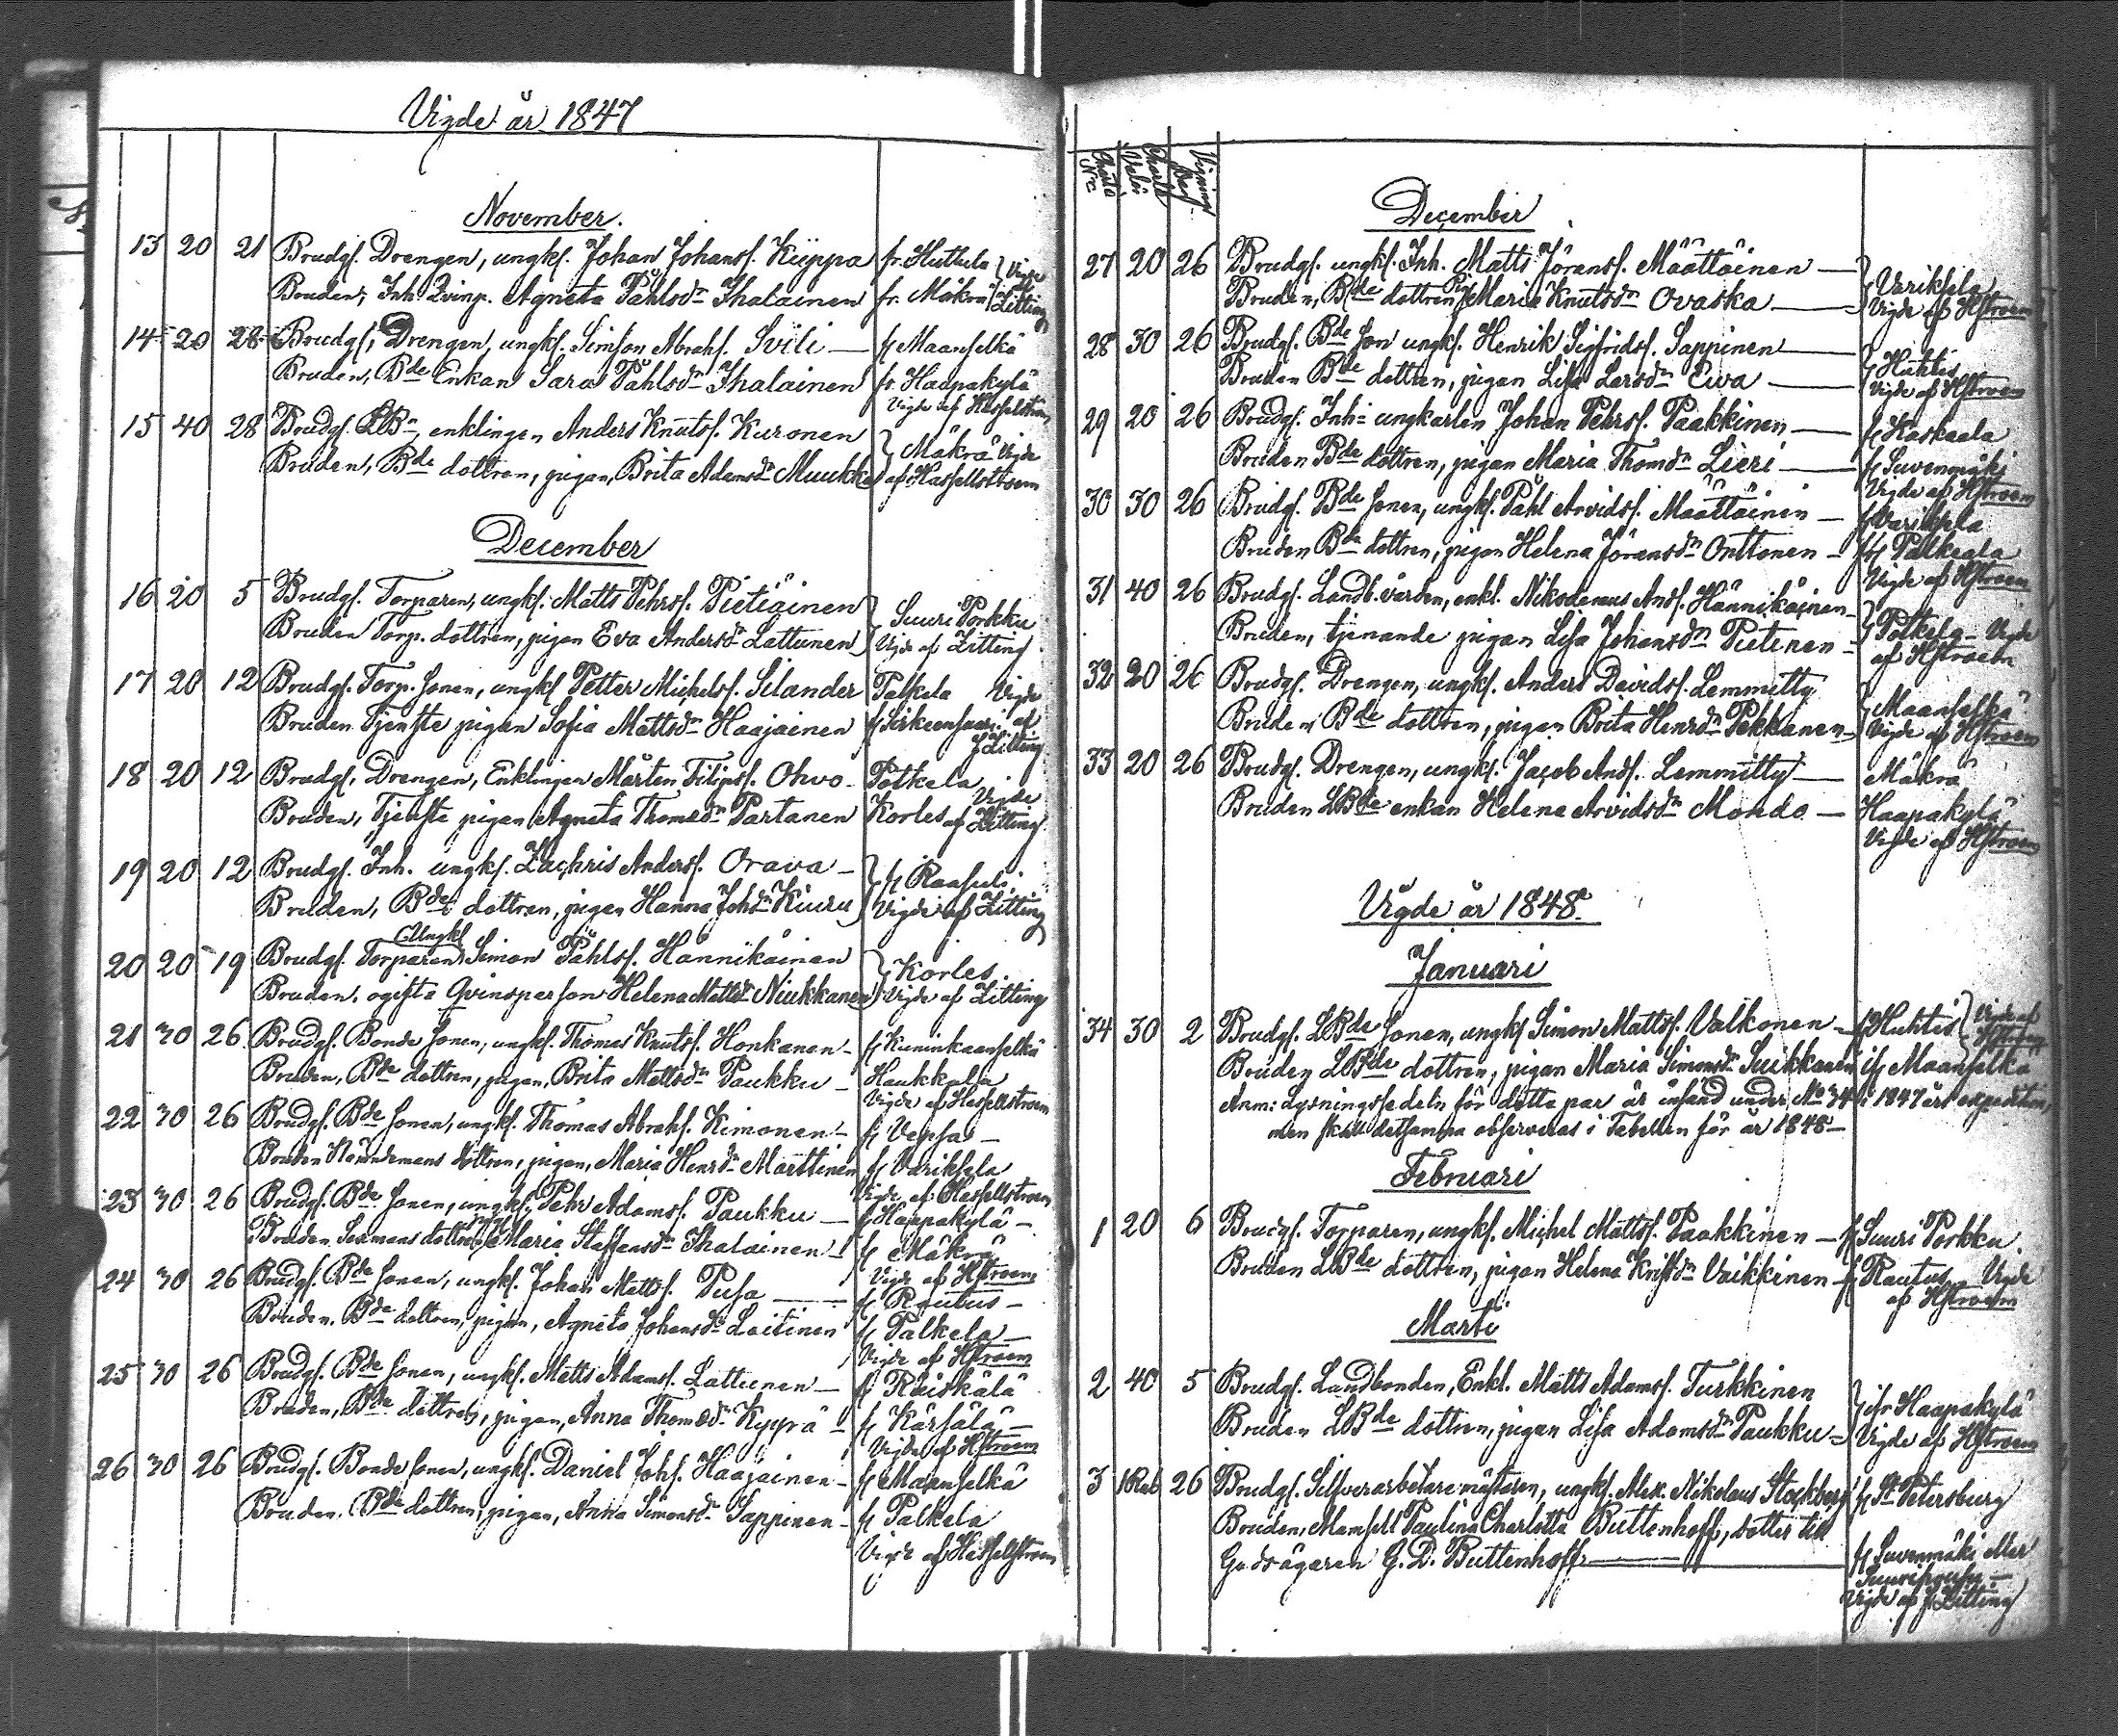 Vigde år 1847
November.
13 20 21 Brudg. Drengen, ungk. Johan Johanss. Kyppa fr. Huttula
Bruden, Inh. Qvinp. Agneta Påhlsdr Ihalainen fr. Mäkrä Vigde af Zitting
14 20 28 Brudg. Drengen, ungk. Simson Abrahs. Svili fr Maanselkä
Bruden, Bde Enkan Sara Påhlsdr Ihalainen fr. Haapakylä
Vigde af Hasselstroem
15 40 28 Brudg. LBn, enklingen Anders Knutss. Kuronen
Bruden, Bde dottren, pigan, Brita Adamsdr Muukka Mäkrä Vigde af Hasselstroem
December
16 20 5 Brudg. Torparen, ungk. Matts Pehrss. Pietiäinen Suuri Porkku
Bruden Torp. dottren, pigan Eva Andersdr Lattunen Vigde af Zitting
17 20 12 Brudg. Torp. sonen, ungk Petter Michelss. Silander Palkela Vigde
Bruden Tjenste pigan Sofia Mattsdr Haajainen fr Sirkeensaari af Zitting
18 20 12 Brudg. Drengen, Enklingen Mårten Filipss. Ohvo Potkela
Bruden, Tjenste pigan Agneta Thomsdr Partanen Korles Vigde af Zitting
19 20 12 Brudg. Inh. ungk. Zachris Anderss. Orava fr Raasuli
Bruden, Bde dottren, pigan Hanna Johsdr Kiuru Vigde af Zitting
Ungk
20 20 19 Brudg. Torparen Simon Påhlss. Hännikäinen Korles.
Bruden. ogifta Qvinsperson Helena Mattsdr Niukkanen Vigde af Zitting
21 30 26 Brudg. Bonde sonen, ungk. Thomas Knutss. Honkanen fr Kuninkaanselkä
Bruden, Bde dottren, pigan, Brita Mattsdr Paukku Haukkala
Vigde af Hasselstroem
22 30 26 Brudg. Bde sonen, ungk. Thomas Abrahs. Kimonen fr Vepsa
Bruden Nämndemans dottren, pigan, Maria Henrsdr Marttinen fr Variksela
Vigde af Hasselstroem
23 30 26 Brudg. Bde sonen, ungk. Pehr Adamss. Paukku fr Haapakylä
Bruden Sexmans dottren pig Maria Staffansdr Ihalainen fr Mäkrä
Vigde af Hstroem
24 30 26 Brudg. Bde sonen, ungk. Johan Mattss. Pusa fr Rautus
Bruden, Bde dottren, pigan, Agneta Johansdr Laitinen fr Palkela
Vigde af Hstroem
25 30 26 Brudg. Bde sonen, ungk. Matts Adamss. Lattunen fr Raiskälä
Bruden, Bde dottren, pigan, Anna Thomsdr Kyyrä fr Kärsälä
Vigde af Hstroem
26 30 26 Brudg. Bonde sonen, ungk. Daniel Johs. Haajainen fr Maanselkä
Bruden, Bde dottren, pigan, Anna Simonsdr Sappinen fr Palkela
Vigde af Hasselstroem
December
27 20 26 Brudg. ungk. Inh. Matts Jöranss. Määttäinen Variksela
Bruden, Bde dottren pig Maria Knutsdr Ovaska Vigde af Hstroem
28 30 26 Brudg. Bde son ungk. Henrik Sigfridss. Sappinen Huhtis
Bruden Bde dottren, pigan Lisa Larsdr Ewa Vigde af Hstroem
29 20 26 Brudg. Inh: ungkarlen Johan Pehrss. Paakkinen fr Kaskaala
Bruden Bde dottren, pigan Maria Thomsdr Lieri fr Suvenmäki
Vigde af Hstroem
30 30 26 Brudg. Bde sonen, ungk. Påhl Arvidss. Määttäinen fr Variksela
Bruden Bde dottren, pigan Helena Jöransdr Onttonen fr Palkeala
Vigde af Hstroem
31 40 26 Brudg. Landb. värden, enkl. Nikodemus Ands. Hännikäinen
Bruden, tjenande pigan Lisa Johansdr Pietinen Potkela Vigde af Hstroem
32 20 26 Brudg. Drengen, ungk. Anders Davidss. Lemmitty Maanselkä
Bruden Bde dottren, pigan Brita Henrsdr Pekkanen Vigde af Hstroem
33 20 26 Brudg. Drengen, ungk. Jacob Ands. Lemmitty Mäkrä
Bruden LBde enkan Helena Arvidsdr Mondo Haapakylä
Vigde af Hstroem
Vigde år 1848
Januari
34 30 2 Brudg. LBde sonen, ungk Simon Mattss. Valkonen fr Huhtis Vigde af
Bruden LBde dottren, pigan Maria Simonsdr Suikkanen ifr Maanselkä
Anm: Lysningssedeln för detta par är insänd under No 34 i 1847 års expedition,
men skall detsamma observeras i Tabellen för år 1848
Februari
1 20 6 Brudg. Torparen, ungk. Michel Mattss. Paakkinen fr Suuri Porkku
Bruden LBde dottren, pigan Helena Kristsdr Vaikkinen fr Rautus Vigde
af Hstroem
Marti
2 40 5 Brudg. Landbonden, Enkl. Matts Adamss. Turkkinen ifr Haapakylä
Bruden LBde dottren, pigan Lisa Adamsdr Paukku Vigde af Hstroem
3 1Rub 26 Brudg. Silfverarbetare mästaren, ungk. Alex. Nikolaus Stockberg fr St Petersburg
Bruden, Mamsell Paulina Charlotta Buttenhoff, dotter till
Godsägaren G. D. Buttenhoff fr Suvenmäki eller
Vigde af Zitting